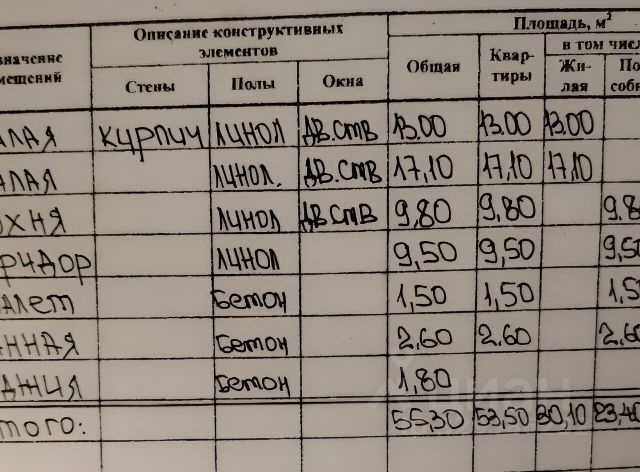 Описание конструктивных элементов Площадь, м²
значение мещений Стены Полы Окна Общая Квар- тиры в том числе Жи- лая По собн
АЛАЯ КИРПИЧ ЛИНОЛ ДВ.СТВ 13.00 13.00 13.00
АЛАЯ ЛИНОЛ. ДВ.СТВ 17,10 17,10 17,10
ХНЯ ЛИНОЛ ДВ.СТВ 9,80 9,80 9.8
РИДОР ЛИНОЛ 9,50 9,50 9,5
АЛЕТ БЕТОН 1,50 1,50 1,5
АННАЯ БЕТОН 2,60 2.60 2,6
ДЖИЯ БЕТОН 1,80
ТОГО: 55,30 53,50 30,10 23,40
циан